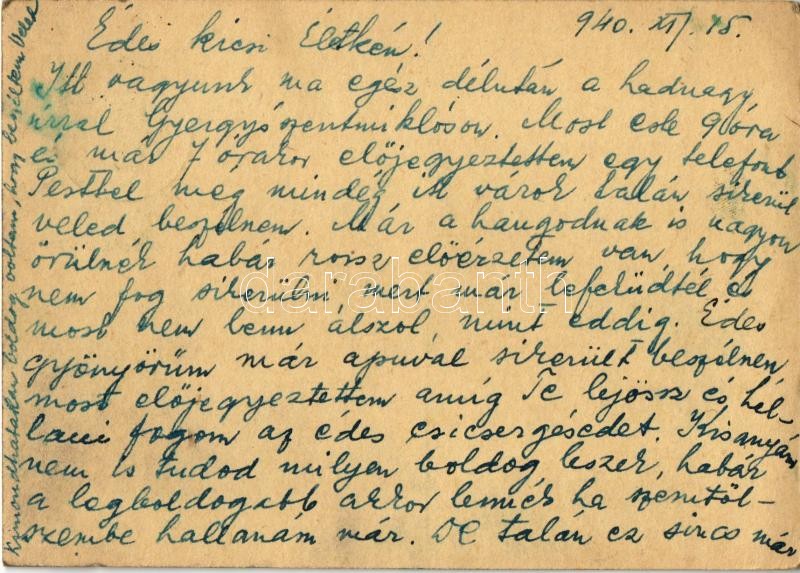 940. XII. 15.
Édes kicsi Életkém!
Itt vagyunk ma egész délután a hadnagy
úrral Gyergyószentmiklóson. Most este 9 óra
és már 7 órakor előjegyeztettem egy telefont
Pesttel még mindég itt várok talán sikerül
veled beszélnem. Már a hangodnak is nagyon
örülnék habár rossz előérzetem van, hogy
nem fog sikerülni mert már lefeküdtél és
most nem lenn álszol, mint eddig. Édes
gyönyörűm már apuval sikerült beszélnem
most előjegyeztettem amíg Te lejössz és hal-
lani fogom az édes csicsergésedet. Kisanyám
nem is tudod milyen boldog leszek, habár
a legboldogabb akkor lennék ha szemtől-
szembe hallanám már. De talán ez sincs már
Kimondhatatlan boldog voltam, hogy beszéltem Veled
darabanth